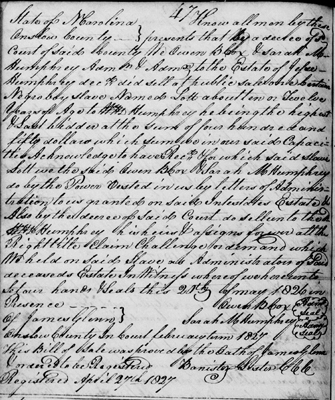 State of N Carolina } 47 Know all men by these
Onslow County } presents that by a decree of
Court of said County We Owen B Cox & Sarah M
Humphrey Admr & Admx to the Estate of John
Humphrey decd did sell at public sale
Negro boy slave Named Lott about ten or Twelve
Years of Age to Humphrey he being the highest
& last bidder at the sum of four hundred and
fifty dollars which sum we in our said Capacity
do Acknowledge to have Recd for which said slave
Lott we the said Owen B Cox & Sarah M Humphrey
do by the Power Vested in us by letters of Administ
tration to us granted on said Intestates Estate &
Also by the decree of said Court do sell unto the
Humphrey his heirs & assigns forever all the
Right title Claim Challenge or demand which
We hold on said Slave as Administrators of said
deceaseds Estate In Witness whereof we hereunto
set our hands & seals this 20th of may 1826 in
Presence Owen B Cox (Seal)
of James Glenn } Sarah M Humphrey (Seal)
Onslow County In Court february term 1827
This Bill of Sale was proved by the Oath of James Glenn
Ordered to be Registered Banister Lester C C
Registered April 27th 1827